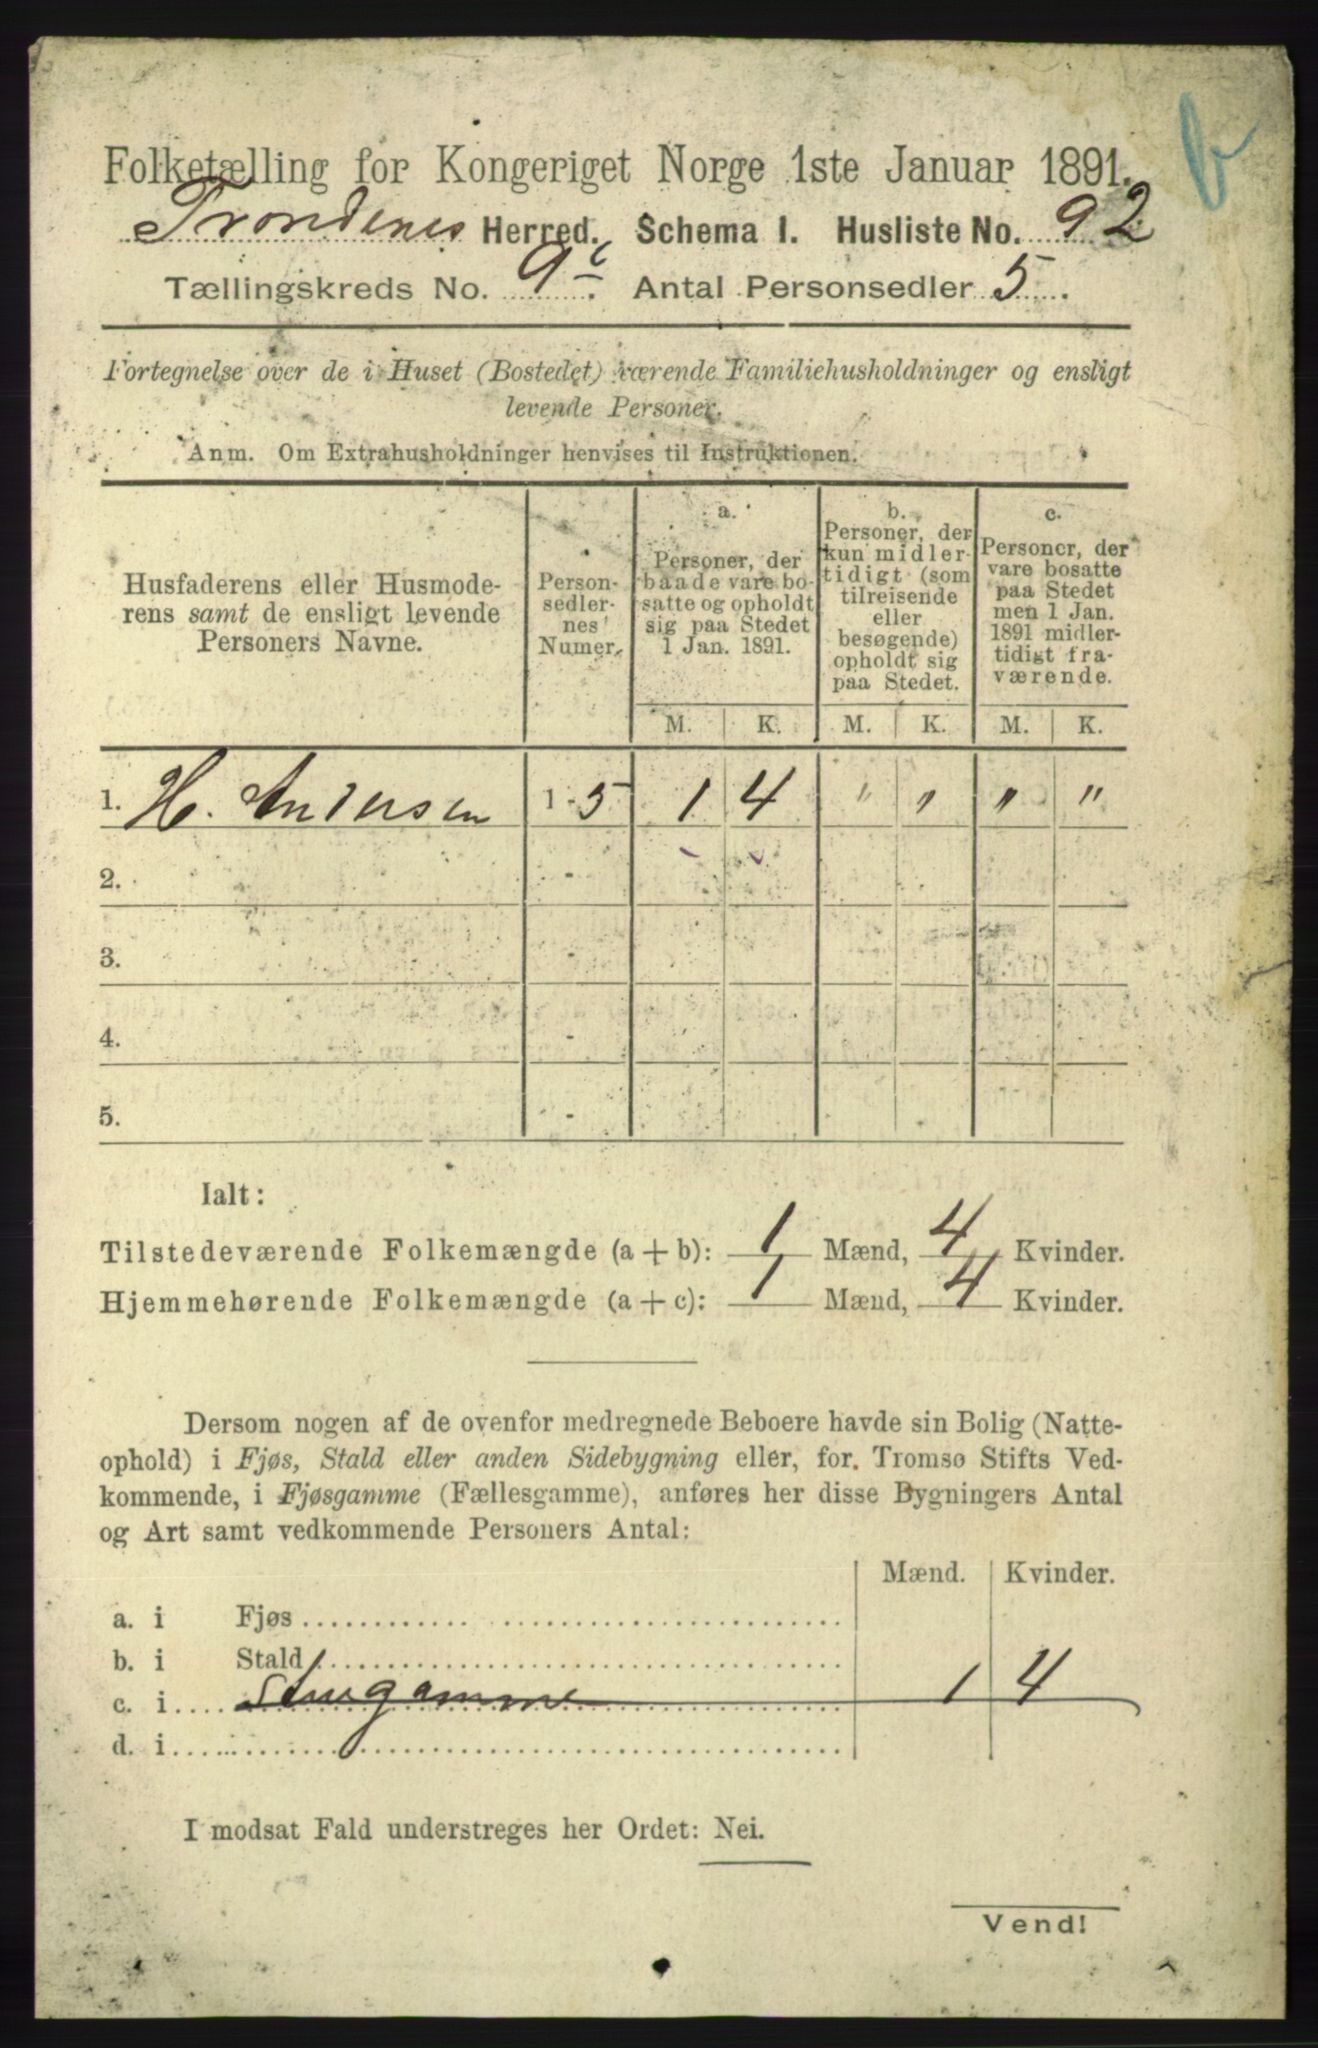 b
Folketælling for Kongeriget Norge 1ste Januar 1891.
Trondenes Herred. Schema I. Husliste No. 92
Tællingskreds No. 9c. Antal Personsedler 5.
Fortegnelse over de i Huset (Bostedet) værende Familiehusholdninger og ensligt
levende Personer.
Anm. Om Extrahusholdninger henvises til Instruktionen.
Husfaderens eller Husmode-
rens samt de ensligt levende
Personers Navne.
Person-
sedler-
nes
Numer.
a.
Personer, der
baade vare bo-
satte og opholdt
sig paa Stedet
1 Jan. 1891.
b.
Personer, der
kun midler-
tidigt (som
tilreisende
eller
besøgende)
opholdt sig
paa Stedet.
c.
Personer, der
vare bosatte
paa Stedet
men 1 Jan.
1891 midler-
tidigt fra-
værende.
M. K. M. K. M. K.
1. H. Andersen 1-5 1 4 " " " "
2. -
3. -
4. -
5. -
Ialt:
Tilstedeværende Folkemængde (a + b): 1 Mænd, 4 Kvinder.
Hjemmehørende Folkemængde (a + c): 1 Mænd, 4 Kvinder.
Dersom nogen af de ovenfor medregnede Beboere havde sin Bolig (Natte-
ophold) i Fjøs, Stald eller anden Sidebygning eller, for Tromsø Stifts Ved-
kommende, i Fjøsgamme (Fællesgamme), anføres her disse Bygningers Antal
og Art samt vedkommende Personers Antal:
Mænd. Kvinder.
a. i Fjøs
b. i Stald
c. i 1 4
d. i
I modsat Fald understreges her Ordet: Nei.
Vend!